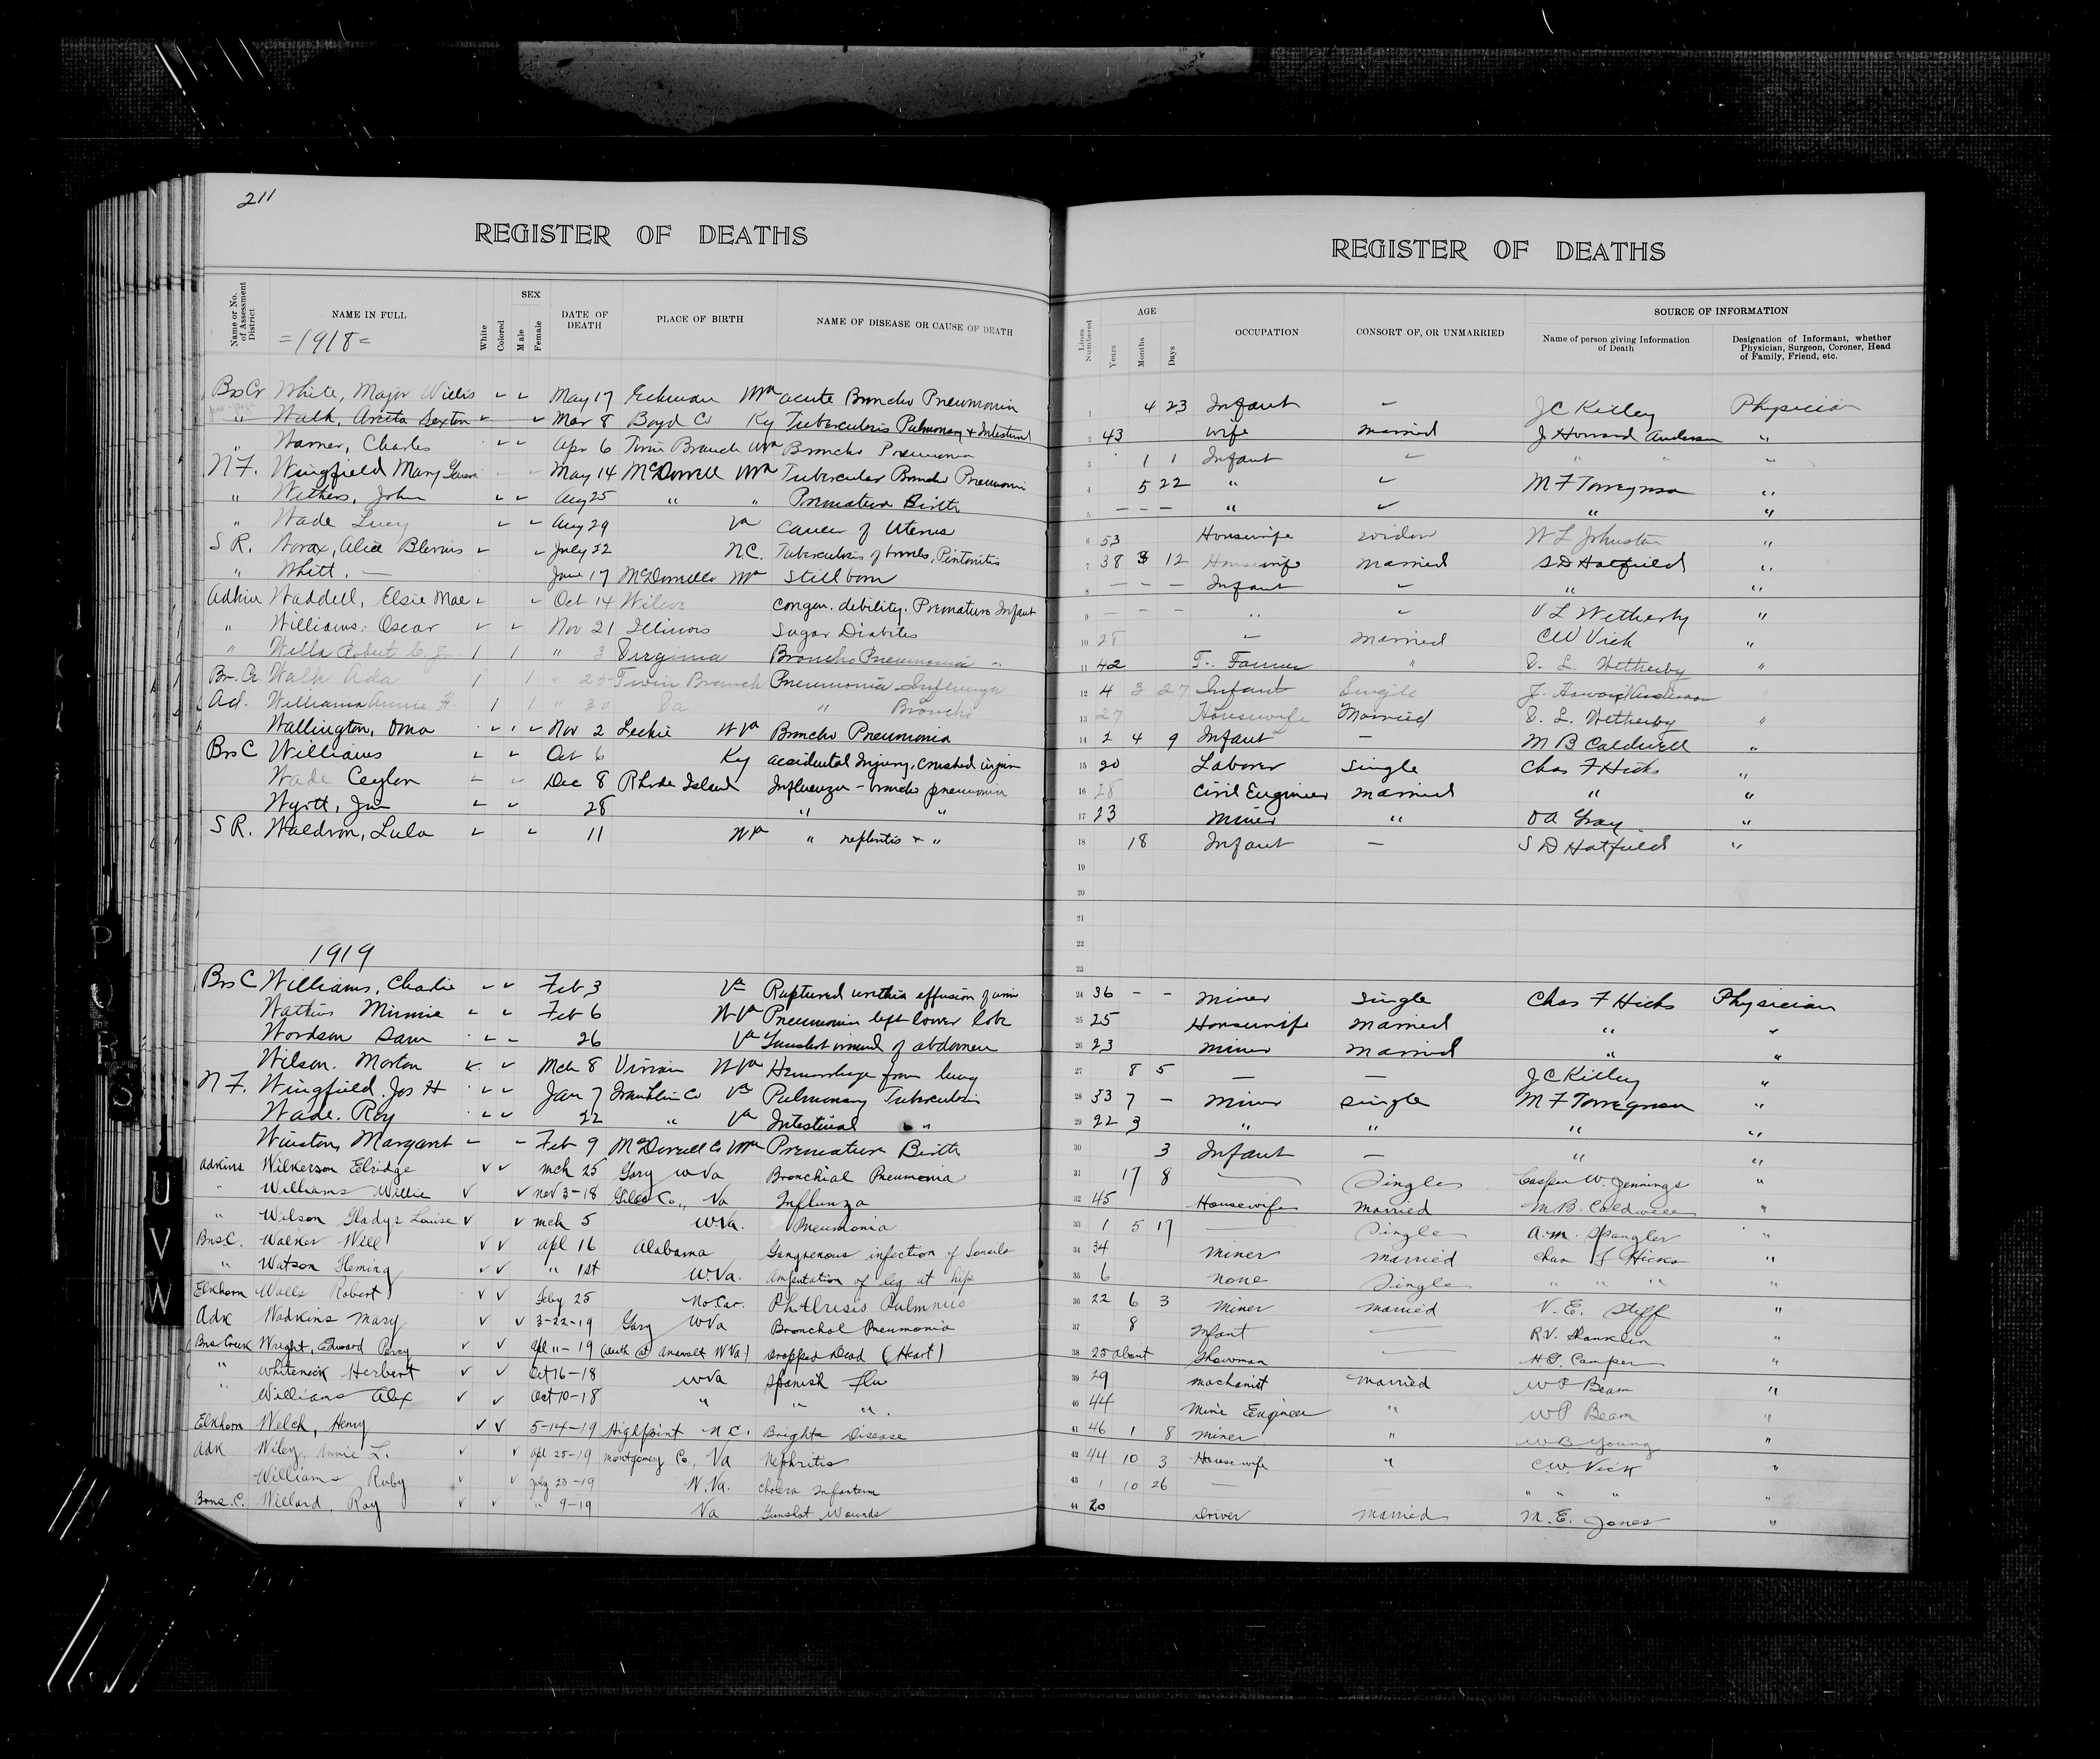 211
REGISTER OF DEATHS
REGISTER OF DEATHS
Name or No. of Assessment District
NAME IN FULL
White
Colored
SEX
Male
Female
DATE OF DEATH
PLACE OF BIRTH
NAME OF DISEASE OR CAUSE OF DEATH
Lines Numbered
AGE
Years
Months
Days
OCCUPATION
CONSORT OF, OR UNMARRIED
SOURCE OF INFORMATION
Name of person giving Information of Death
Designation of Informant, whether Physician, Surgeon, Coroner, Head of Family, Friend, etc.
=1918=
BrsCr White, Major Willis May 17 Eckman WVa acute Broncho Pneumonia 1 4 23 Infant - JC Killey Physician
" Walk, Sexton Mar 8 Boyd Co Ky Tuberculosis Pulmonary & Intestinal 2 43 wife married J. Howard Anderson "
" Warner, Charles Apr 6 Twin Branch WVa Broncho Pneumonia 3 1 1 Infant - " " "
N F. Wingfield Mary May 14 McDowell WVa Tubercular Broncho Pneumonia 4 5 22 " - M F "
" Withers, John Aug 25 " " Premature Birth 5 - - - " - " "
" Wade Lucy Aug 29 Va Cancer of Uterus 6 53 Housewife widow W L Johnston "
S R. Alice Blevins July 22 N.C. Tuberculosis of 7 38 3 12 Housewife married S D Hatfield "
" Whitt. - June 17 McDowell Co WVa Stillborn 8 - - - Infant - " "
Adkin Waddell, Elsie Mae Oct 14 Wilcoe Congen. debility. Premature Infant 9 - - - " - V L Wetherby "
" Williams, Oscar Nov 21 Illinois Sugar Diabetes 10 28 - married CW Vick "
" Wills Robert " 3 Virginia Broncho Pneumonia 11 42 T. Farmer " V. L. Wetherby "
Br. Cr. Walk Ada " 25 Twin Branch Pneumonia Influenza 12 4 3 27 Infant Single J. Howard Anderson "
Ad. Williams Annie H. " 30 Va " Broncho 13 27 Housewife Married V. L. Wetherby "
Wallington, Oma Nov 2 Leckie W Va Broncho Pneumonia 14 2 4 9 Infant - M B Caldwell "
BrsC Williams Oct 6 Ky accidental Injury, crushed 15 20 Laborer single Chas F Hicks "
Wade Ceylon Dec 8 Rhode Island Influenza - broncho pneumonia 16 28 Civil Engineer married " "
Wyott, 28 " " 17 23 miner " O A Gray "
S R. Waldron, Lula 11 W Va " & " 18 18 Infant - S D Hatfield "
19
20
21
22
1919
23
BrsC Williams, Charlie Feb 3 Va Ruptured urethra effusion of urine 24 36 - - miner single Chas F Hicks Physician
Watkins Minnie Feb 6 W Va Pneumonia left lower lobe 25 25 Housewife married " "
Wordson Sam 26 Va Gunshot wound of abdomen 26 23 miner married " "
Wilson. Morton Mch 8 Vivian W Va Hemorrhage from lung 27 8 5 - - J C Killey "
N F. Wingfield. Jos H Jan 7 Franklin Co Va Pulmonary Tuberculosis 28 33 7 - miner single M F "
Wade. Roy 22 " Va Intestinal " 29 22 3 " " " "
Winston, Margaret Feb 9 McDowell Co WVa Premature Birth 30 3 Infant - " "
Adkins Wilkerson Elridge mch 25 Gary W Va Bronchial Pneumonia 31 17 8 - Single Casper W. Jennings "
" Williams Willie nov 3-18 Giles Co., Va Influenza 32 45 Housewife married M. B. Caldwell "
" Wilson Gladys Louise mch 5 W Va. Pneumonia 33 1 5 17 - Single A. M. Spangler "
BrusC. Walker Will apl 16 Alabama Gangrenous infection of tonsils 34 34 miner married Chas F Hicks "
" Watson Fleming " 1st W.Va. Amputation of leg at hip 35 6 none Single " " " "
Elkhorn Walls Robert Feby 25 No. Car. Phthisis Pulmnus 36 22 6 3 miner married V. E. Stiff "
Adk Wadkins Mary 3-22-19 Gary W Va Bronchal Pneumonia 37 8 Infant - R.V. Shanklin "
Brus Creek Wright, Edward Percy apl 11-19 (death at Anawalt W Va) Dropped Dead (Heart) 38 25 about Showman - H. G. Camper "
" Whiteneck Herbert Oct 16-18 W Va Spanish Flu 39 29 machanist married W P Beam "
" Williams Alex Oct 10-18 " " " 40 44 Mine Engineer " W P Beam "
Elkhorn Welch, Henry 5-14-19 Highpoint N.C. Brights Disease 41 46 1 8 miner " W B Young "
Adk Wiley, Annie L. apl 25-19 Montgomery Co., Va Nephritis 42 44 10 3 Housewife " C. W. Vick "
Williams Ruby July 23-19 W. Va. Cholera Infantum 43 1 10 26 - " " " "
Brns. C. Willard, Roy " 9-19 Va Gunshot Wounds 44 20 Driver married M. E. Jones "
P
Q
R
S
U
V
W